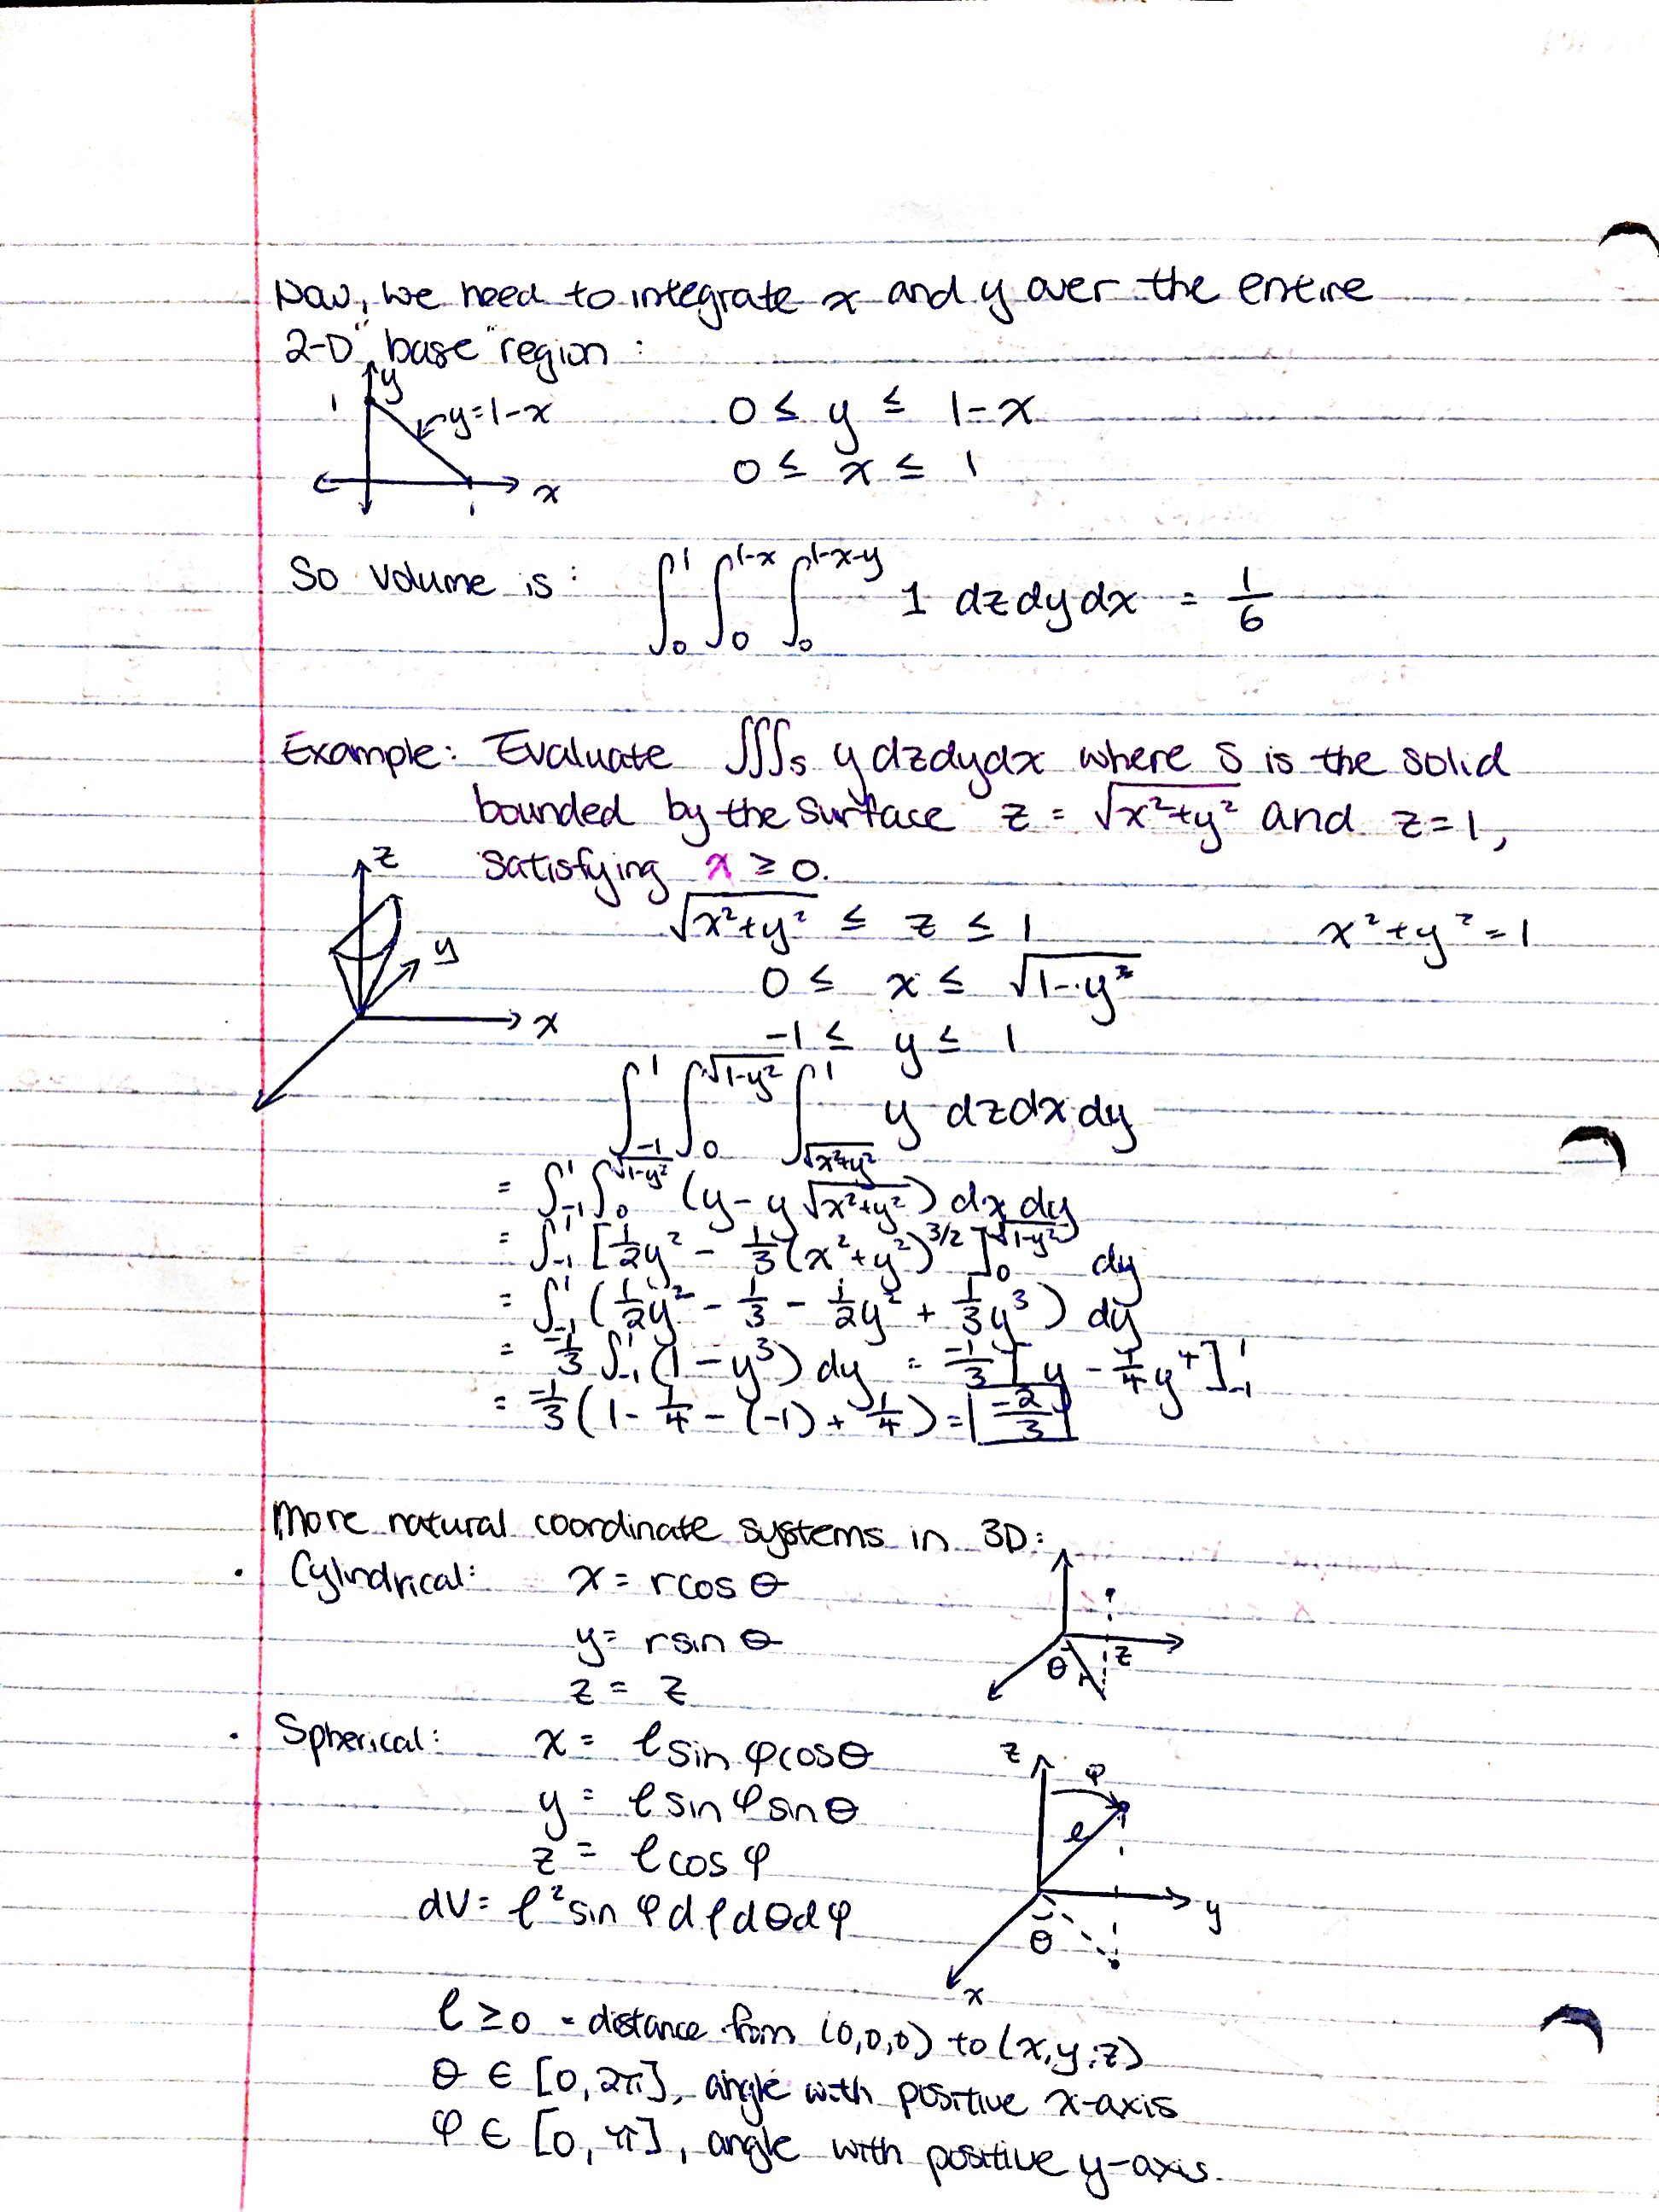 Now, we need to integrate x and y over the entire
2-D "base" region:
y
1
y=1-x
0 ≤ y ≤ 1-x
0 ≤ x ≤ 1
x
1
So volume is: ∫₀¹ ∫₀^{1-x} ∫₀^{1-x-y} 1 dz dy dx = 1/6
Example: Evaluate ∭_S y dzdydx where S is the solid
bounded by the surface z = √(x²+y²) and z=1,
satisfying x ≥ 0.
z
y
x
√(x²+y²) ≤ z ≤ 1
x²+y²=1
0 ≤ x ≤ √(1-y²)
-1 ≤ y ≤ 1
∫_{-1}^{1} ∫₀^{√(1-y²)} ∫_{√(x²+y²)}^{1} y dzdxdy
= ∫_{-1}^{1} ∫₀^{√(1-y²)} (y - y√(x²+y²)) dx dy
= ∫_{-1}^{1} [1/2 y² - 1/3 (x²+y²)^{3/2}]₀^{√(1-y²)} dy
= ∫_{-1}^{1} (1/2 y² - 1/3 - 1/2 y² + 1/3 y³) dy
= -1/3 ∫_{-1}^{1} (1-y³) dy = -1/3 [y - 1/4 y⁴]_{-1}^{1}
= -1/3 (1 - 1/4 - (-1) + 1/4) = -2/3
More natural coordinate systems in 3D:
• Cylindrical: x = rcos θ
y = rsin θ
z = z
θ
z
• Spherical: x = ρsin φcosθ
y = ρsin φsinθ
z = ρcos φ
dV = ρ²sin φdρdθdφ
z
φ
ρ
y
θ
x
ρ ≥ 0 - distance from (0,0,0) to (x,y,z)
θ ∈ [0,2π], angle with positive x-axis
φ ∈ [0,π], angle with positive y-axis.